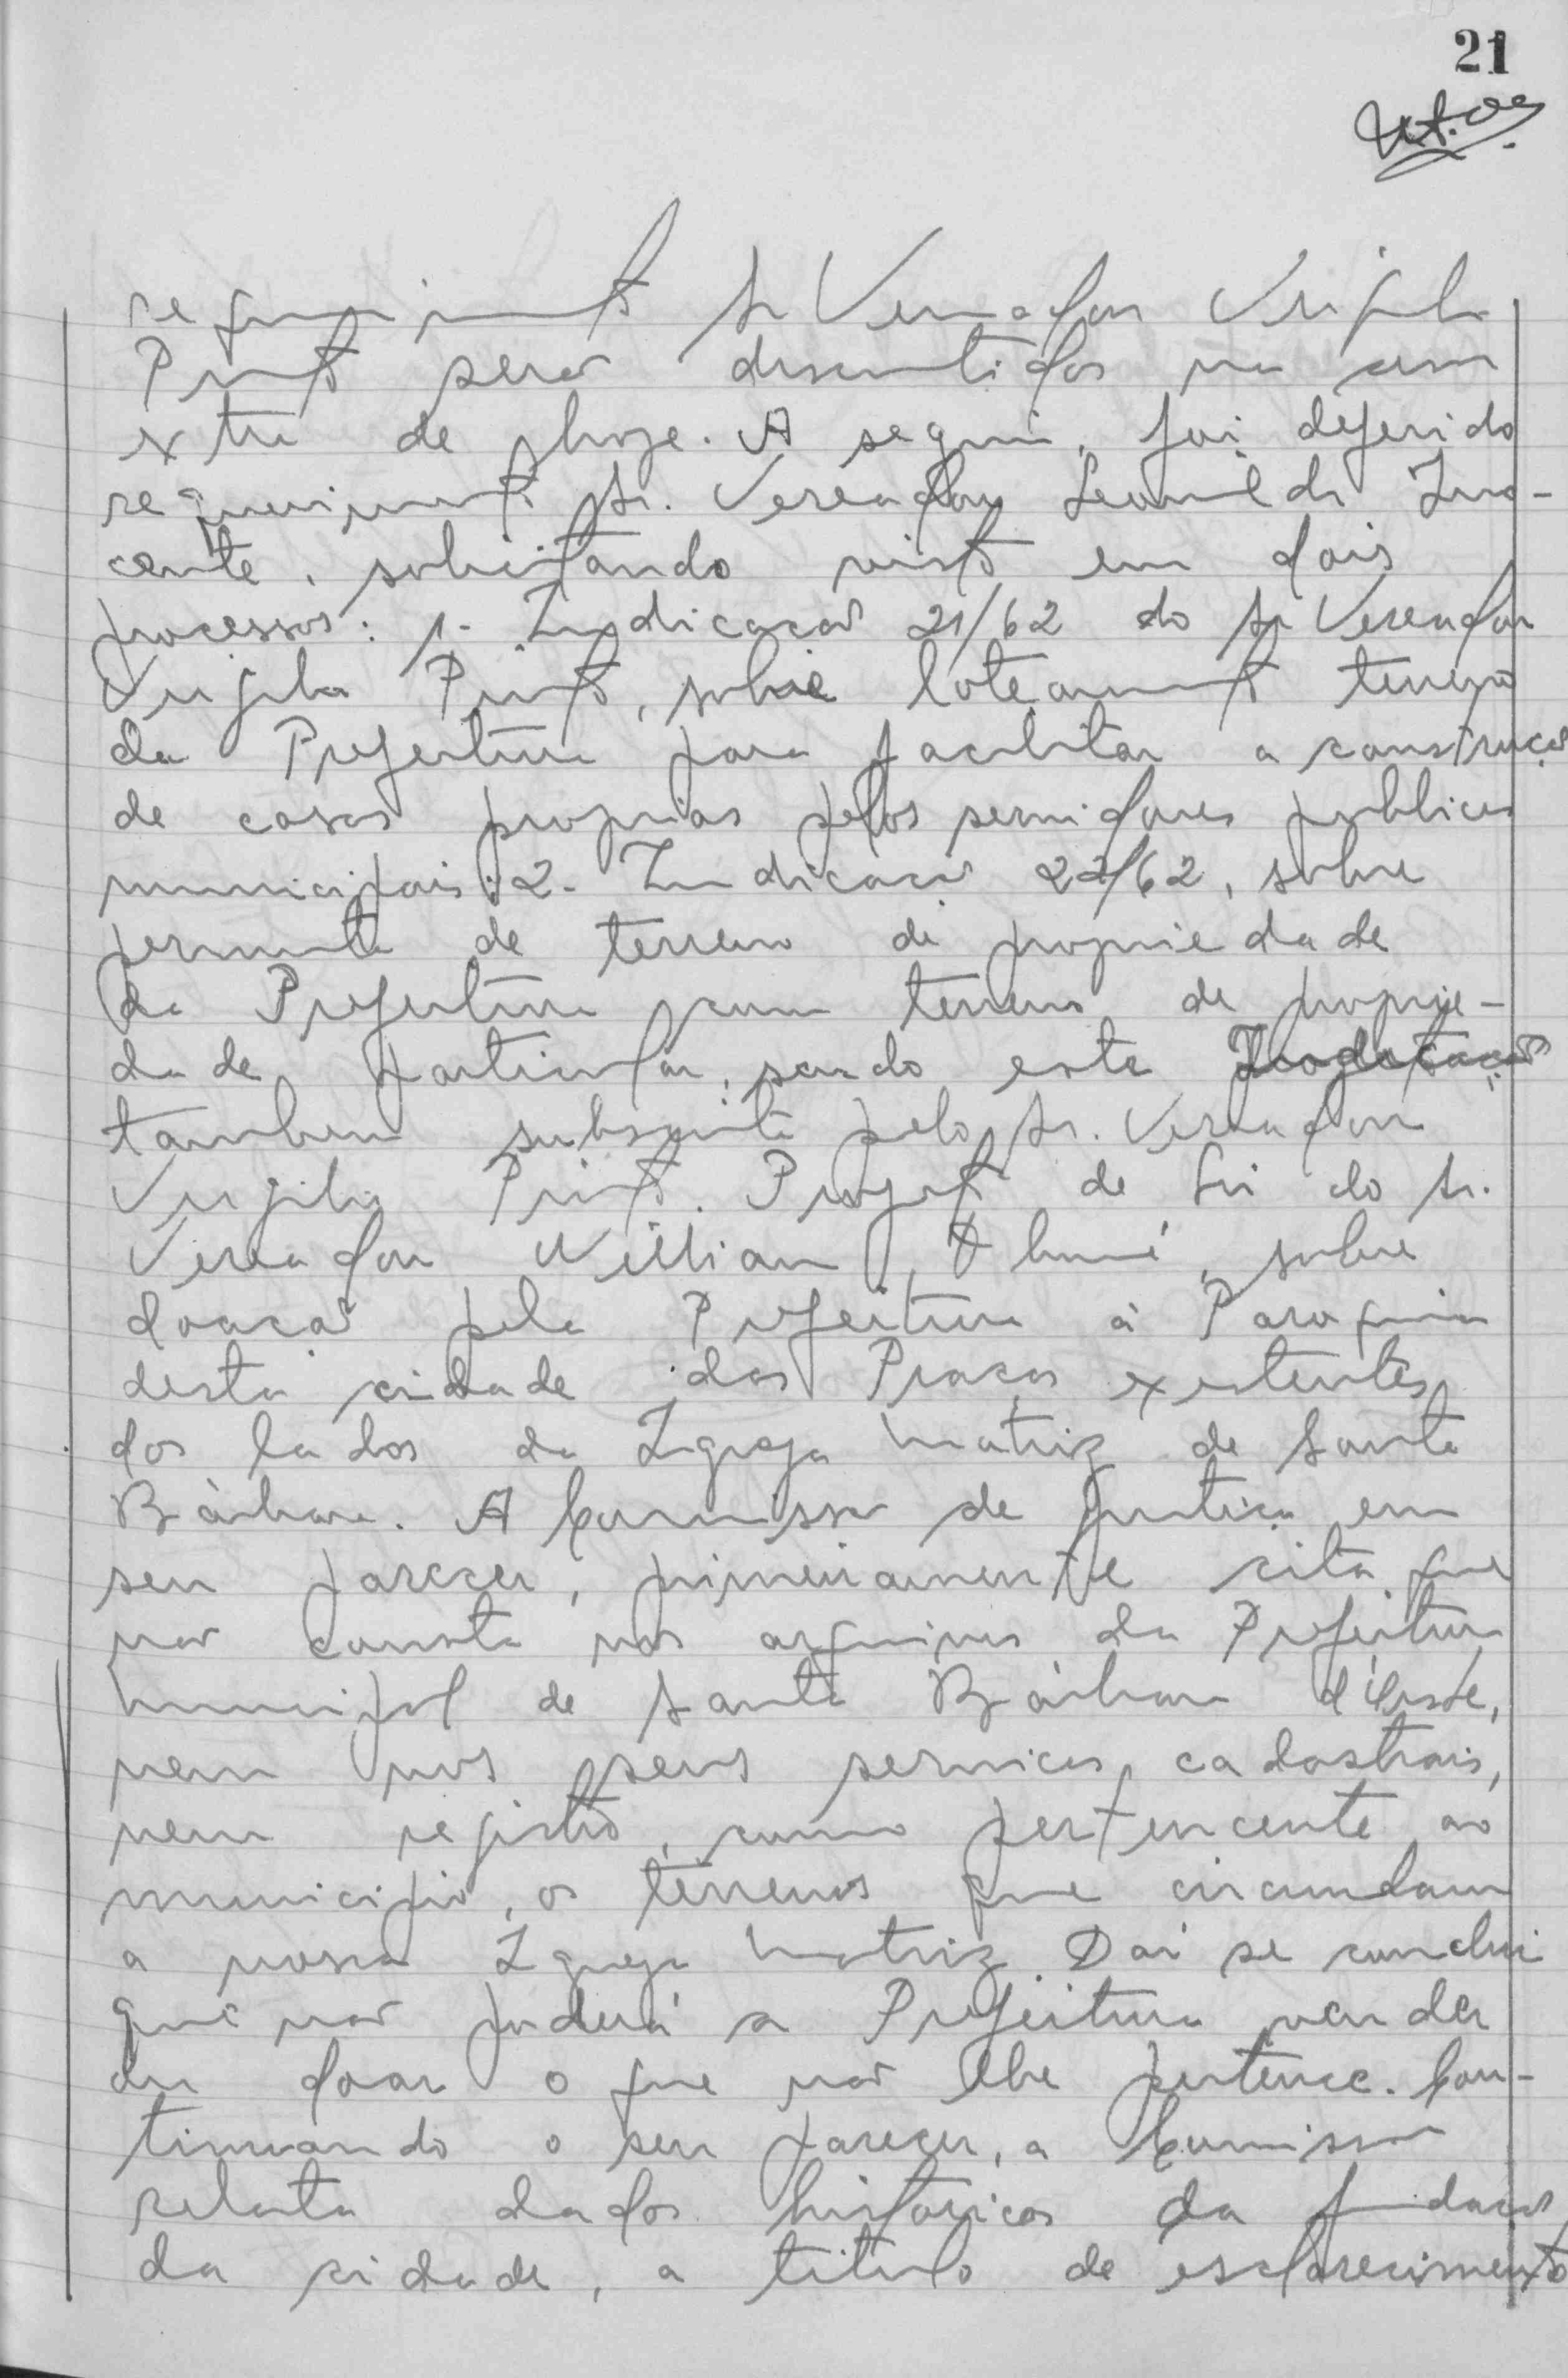 21
requerimento Sr Vereador Virgilio
Pinto serão discutidos na sessão
extra de hoje. A seguir, foi deferido
requerimento Sr. Vereador Leonildo Ino-
cente, solicitando visto em dois
processos: 1- Indicação 21/62 do Sr Vereador
Virgilio Pinto, sobre loteamento terreno
da Prefeitura para facilitar a construção
de casas proprias pelos servidores publicos
municipais: 2- Indicação 22/62, sobre
permuta de terreno de propriedade
da Prefeitura com terreno de proprie-
dade particular, sendo este
tambem subscrito pelo Sr. Vereador
Virgilio Pinto. Projeto de Lei do Sr.
Vereador Willian, sobre
doação pela Prefeitura à Paroquia
desta cidade das Praças existentes
dos lados da Igreja Matriz de Santa
Bàrbara. A Comissão de Justiça em
seu parecer, primeiramente cita que
não consta nos arquivos da Prefeitura
Municipal de Santa Bàrbara d'Oeste,
nem nos seus serviços cadastrais,
nem registro, como pertencente ao
municipio, os terrenos que circundam
a nossa Igreja Matriz. Daí se conclui
que não poderá a Prefeitura vender
ou doar o que não lhe pertence. Con-
tinuando o seu parecer, a Comissão
relata dados historicos da fundação
da cidade, a titulo de esclarecimento